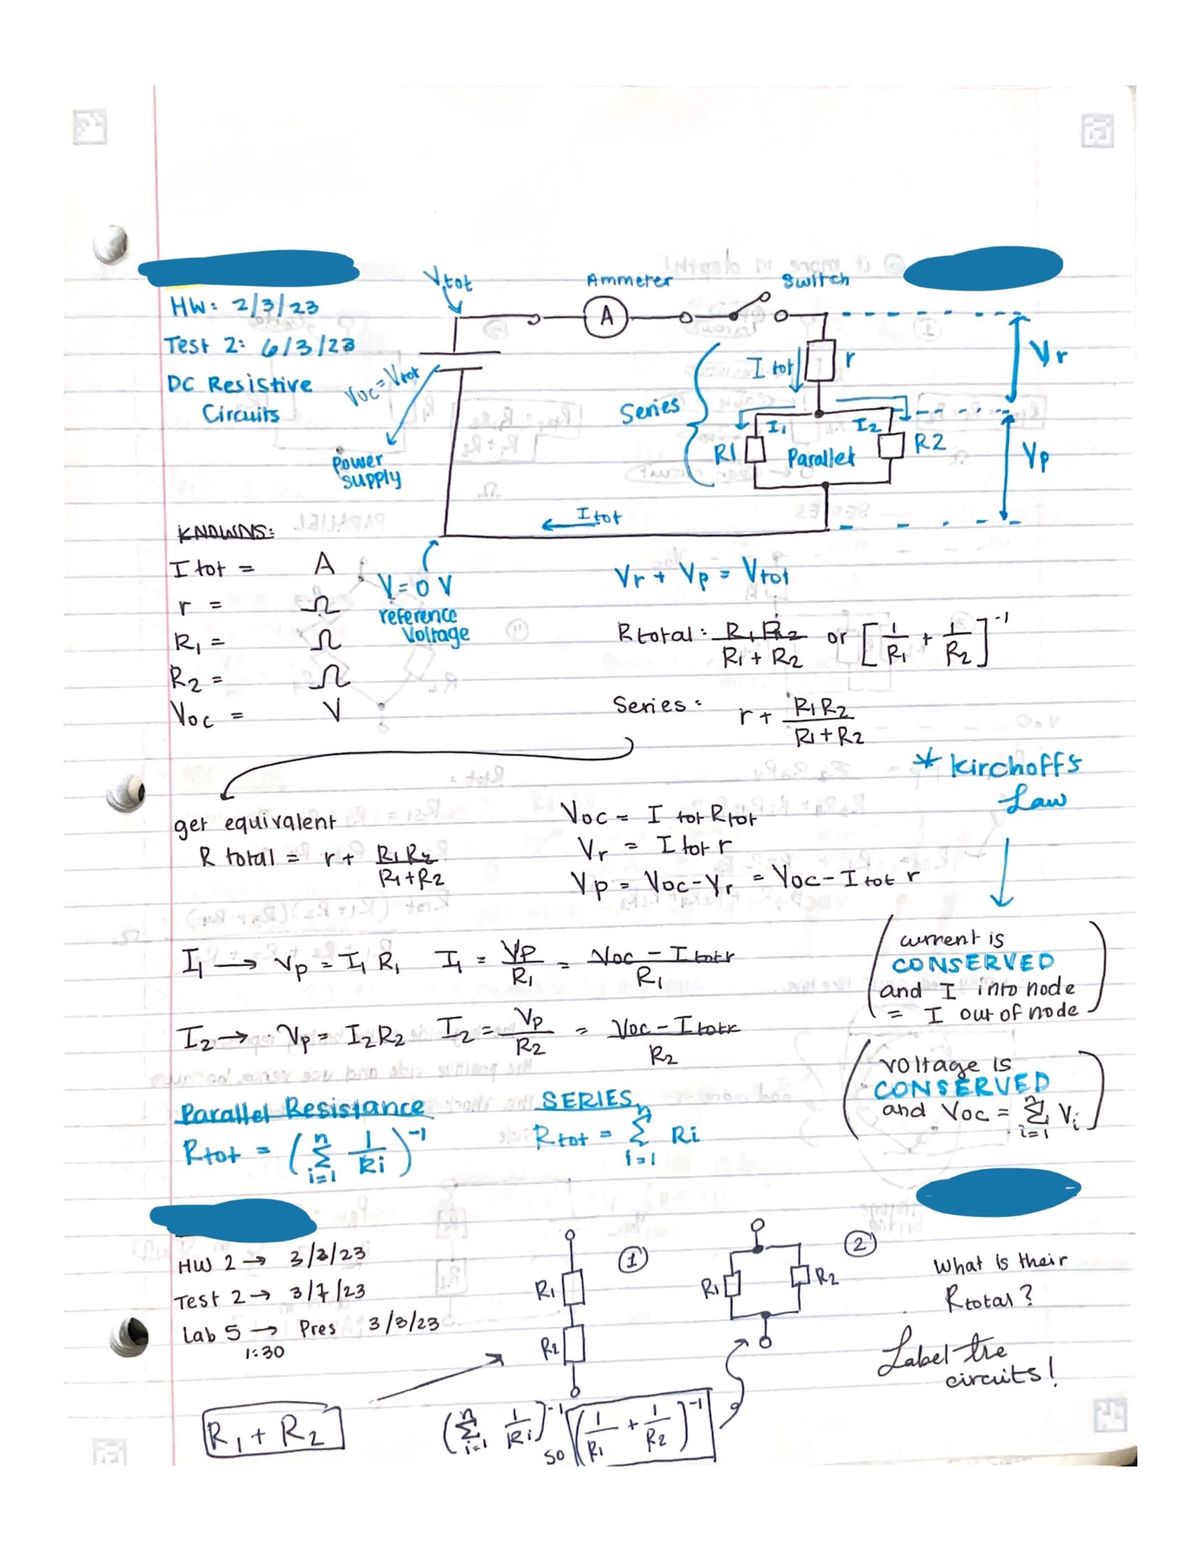 Vtot
Ammeter
Switch
HW: 2/3/23
A
Test 2: 6/3/23
Voc = Vtot
I tot
r
Vr
DC Resistive
Circuits
Series
I1
I2
R1
Parallel
R2
Vp
Power
supply
Itot
KNOWNS:
I tot = A
r = Ω
R1 = Ω
R2 = Ω
Voc = V
V = 0 V
reference
Voltage
Vr + Vp = Vtot
Rtotal: R1 R2 / R1 + R2 or [1/R1 + 1/R2]^-1
Series: r + R1 R2 / R1 + R2
* Kirchoffs
Law
get equivalent
R total = r + R1 R2 / R1 + R2
Voc = I tot Rtot
Vr = I tot r
Vp = Voc - Vr = Voc - I tot r
I1 → Vp = I1 R1 I1 = Vp/R1 = Voc - I tot r / R1
I2 → Vp = I2 R2 I2 = Vp/R2 = Voc - I tot r / R2
current is
CONSERVED
and I into node
= I out of node
voltage is
CONSERVED
and Voc = n Σ i=1 Vi
Parallel Resistance
Rtot = (n Σ i=1 1/Ri)^-1
SERIES
Rtot = n Σ i=1 Ri
HW 2 → 3/3/23
Test 2 → 3/7/23
Lab 5 → Pres 3/8/23
1:30
R1
R2
1
R1
R2
2
What is their
Rtotal?
Label the
circuits!
R1 + R2
(n Σ i=1 1/Ri)^-1 so (1/R1 + 1/R2)^-1